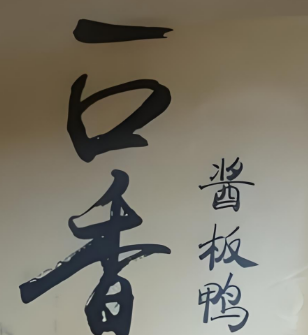 一口香
酱板鸭